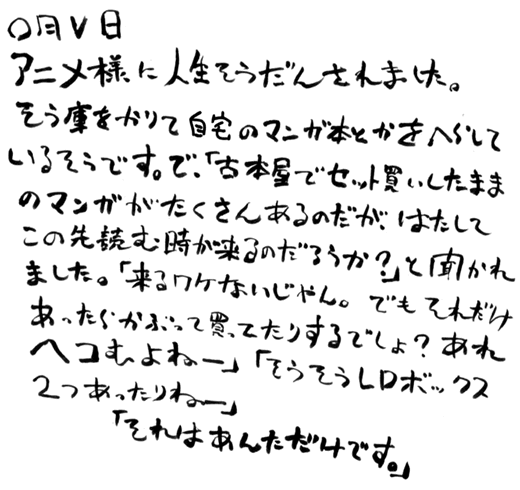 〇月V日
アニメ様に人生そうだんされました。
そう庫をかりて自宅のマンガ本とかをへらして
いるそうです。で、「古本屋でセット買いしたまま
のマンガがたくさんあるのだが、はたして
この先読む時が来るのだろうか?」と聞かれ
ました。「来るワケないじゃん。でもそれだけ
あったらかぶって買ってたりするでしょ?あれ
ヘコむよねー」「そうそうLDボックス
2つあったりねー」
「それはあんただけです。」